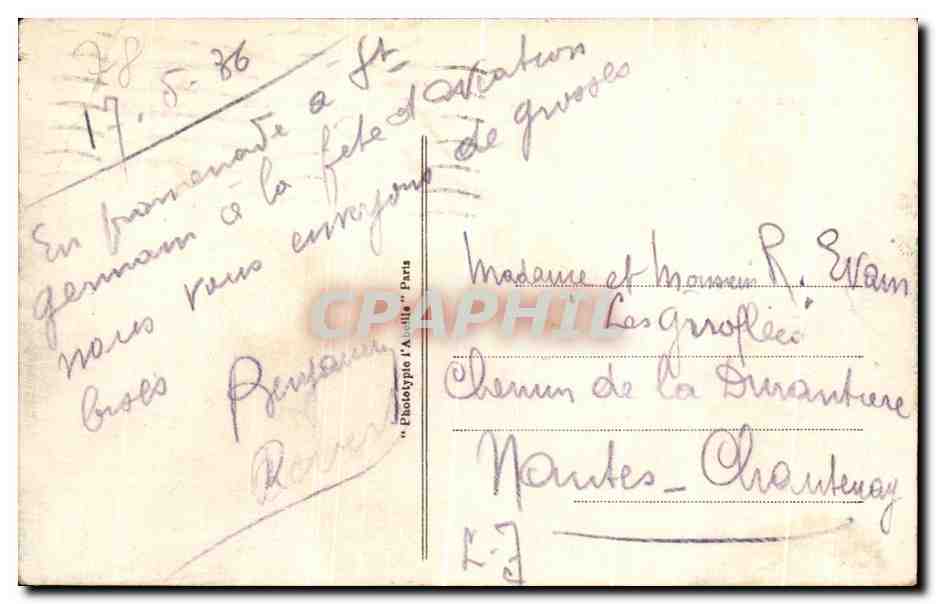 78
17.5-36
En promenade a St
germain à la fête d'aviation
nous vous envoyons de grosses
bises Benjamin
"Phototypie l'Abeille" Paris
CPAPHIL
Madame et Monsieur R. Evain
"Les Giroflées"
Chemin de la Durantiere
Nantes - Chantenay
L-I